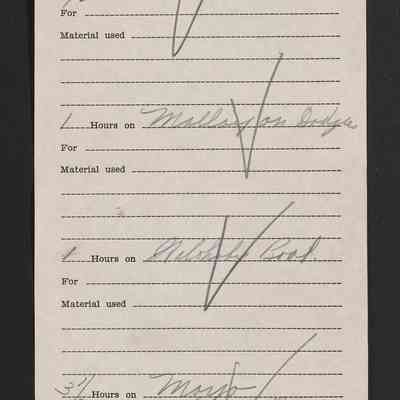 For
Material used
1 Hours on Mallory on Dodge
For
Material used
1 Hours on Road.
For
Material used
3½ Hours on